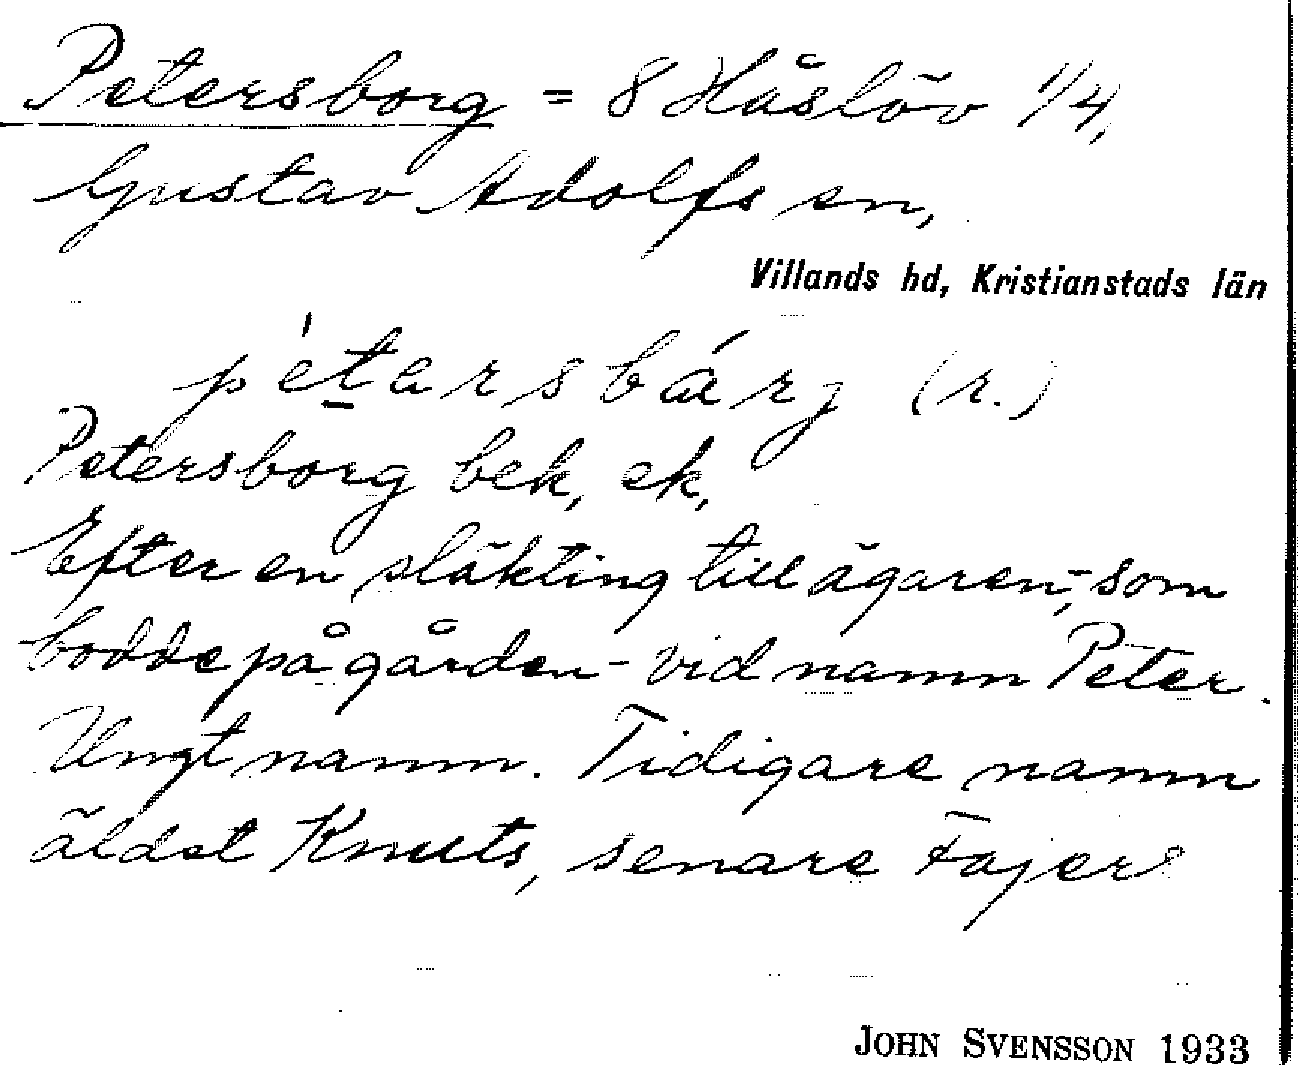 Petersborg = 8 Håslöv 1/4,
Gustav Adolfs sn,
Villands hd, Kristianstads län
pétarsbárg (r.)
Petersborg bek, ek,
Efter en släkting till ägaren, som
bodde på gården - vid namn Peter.
Ungt namn. Tidigare namn
äldst Knuts, senare Fajers
JOHN SVENSSON 1933